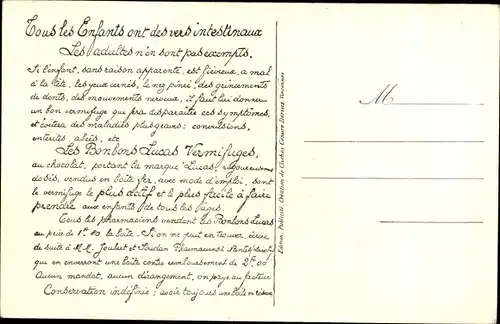 Tous les Enfants ont des vers intestinaux
Les adultes n'en sont pas exempts.
Si l'enfant, sans raison apparente, est fiévreux, a mal
à la tête, les yeux cernés, le nez pincé, des grincements
de dents, des mouvements nerveux, il faut lui donner
un bon vermifuge qui fra disparaître ces symptomes,
et évitera des maladies plus graves: convulsions,
entérites, abcès, etc
Les Bonbons Lucas Vermifuges,
au chocolat, portant la marque "Lucas,
dosés, vendus en boîte fer, avec mode d'emploi, sont
le vermifuge le plus actif et le plus facile à faire
prendre aux enfants de tous les âges.
Tous les pharmaciens vendent les Bonbons Lucas
au prix de la boîte. Si on ne peut en trouver, écrire
de suite à M.M. Joubert et Pharmaciens
qui en enverront une boîte contre remboursement de 2f. 00
Aucun mandat, aucun dérangement, on paye au facteur
Conservation indéfinie; avoir toujours une boîte en réserve
Edition, Publicité, Création de Cachets
M